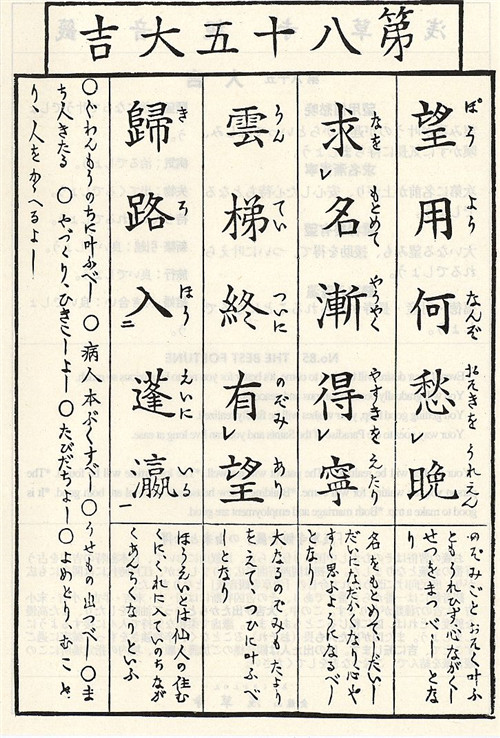 第八十五大吉
望用何愁晩
ぼう よう なんぞ おそきを うれえん
のぞみごとおそく叶ふ
ともそれひず心ながく
せをまつべしとな
り
求名漸得寧
なを もとめて やうやく やすきをえたり
名をもとめてしだいし
だいになだかくなり心や
すく思ふようになるべし
となり
雲梯終有望
うん てい ついに のぞみ あり
大なるのぞみもたより
をえてつひに叶ふべ
しとなり
歸路入蓬瀛
き ろ ほう えいに いる
ほうえいとハ仙人の住む
くに 入ていのちなが
くあんらくなりといふ
〇ぐわんもうのちに叶ふべし〇病人本ぶくすべし〇うせもの出つべし〇ま
ち人きたる〇やづくり、ひきこしよし〇たびだちよし〇よめとり、むこと
り、人をかゝへるよし